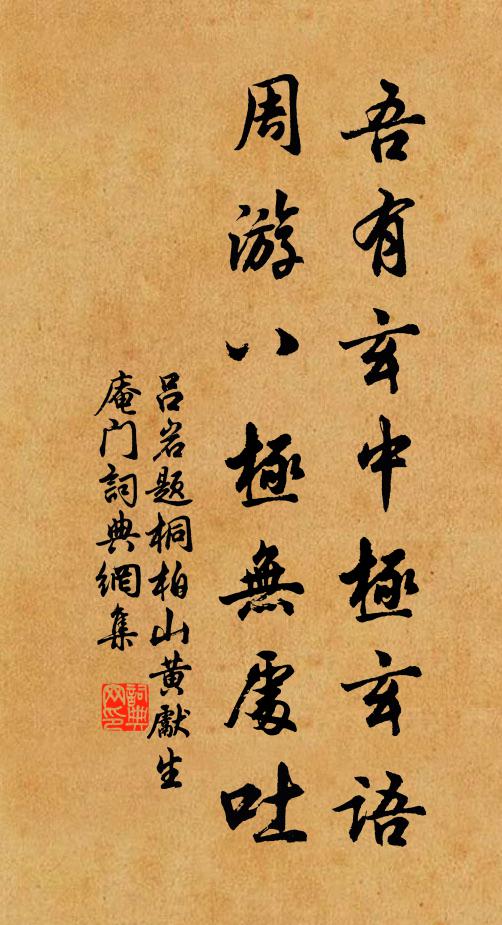 吾有玄中極玄語
周游八極無處吐
吕岩题桐柏山黄獻生
庵门詞典網集
詞典
网印